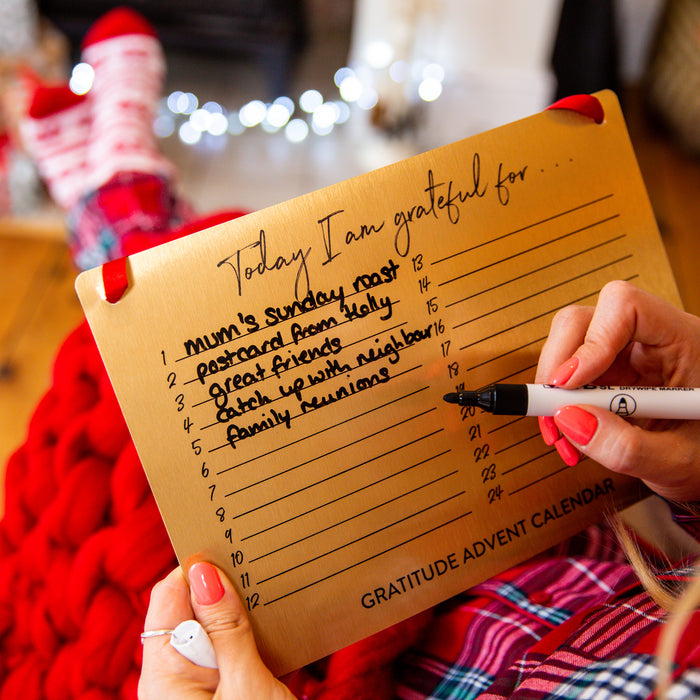 Today I am grateful for...
1 mum's sunday roast
2 postcard from Kelly
3 great friends
4 catch up with neighbour
5 family reunions
6
7
8
9
10
11
12
13
14
15
16
17
18
19
20
21
22
23
24
GRATITUDE ADVENT CALENDAR
DRYWIPE MARKER